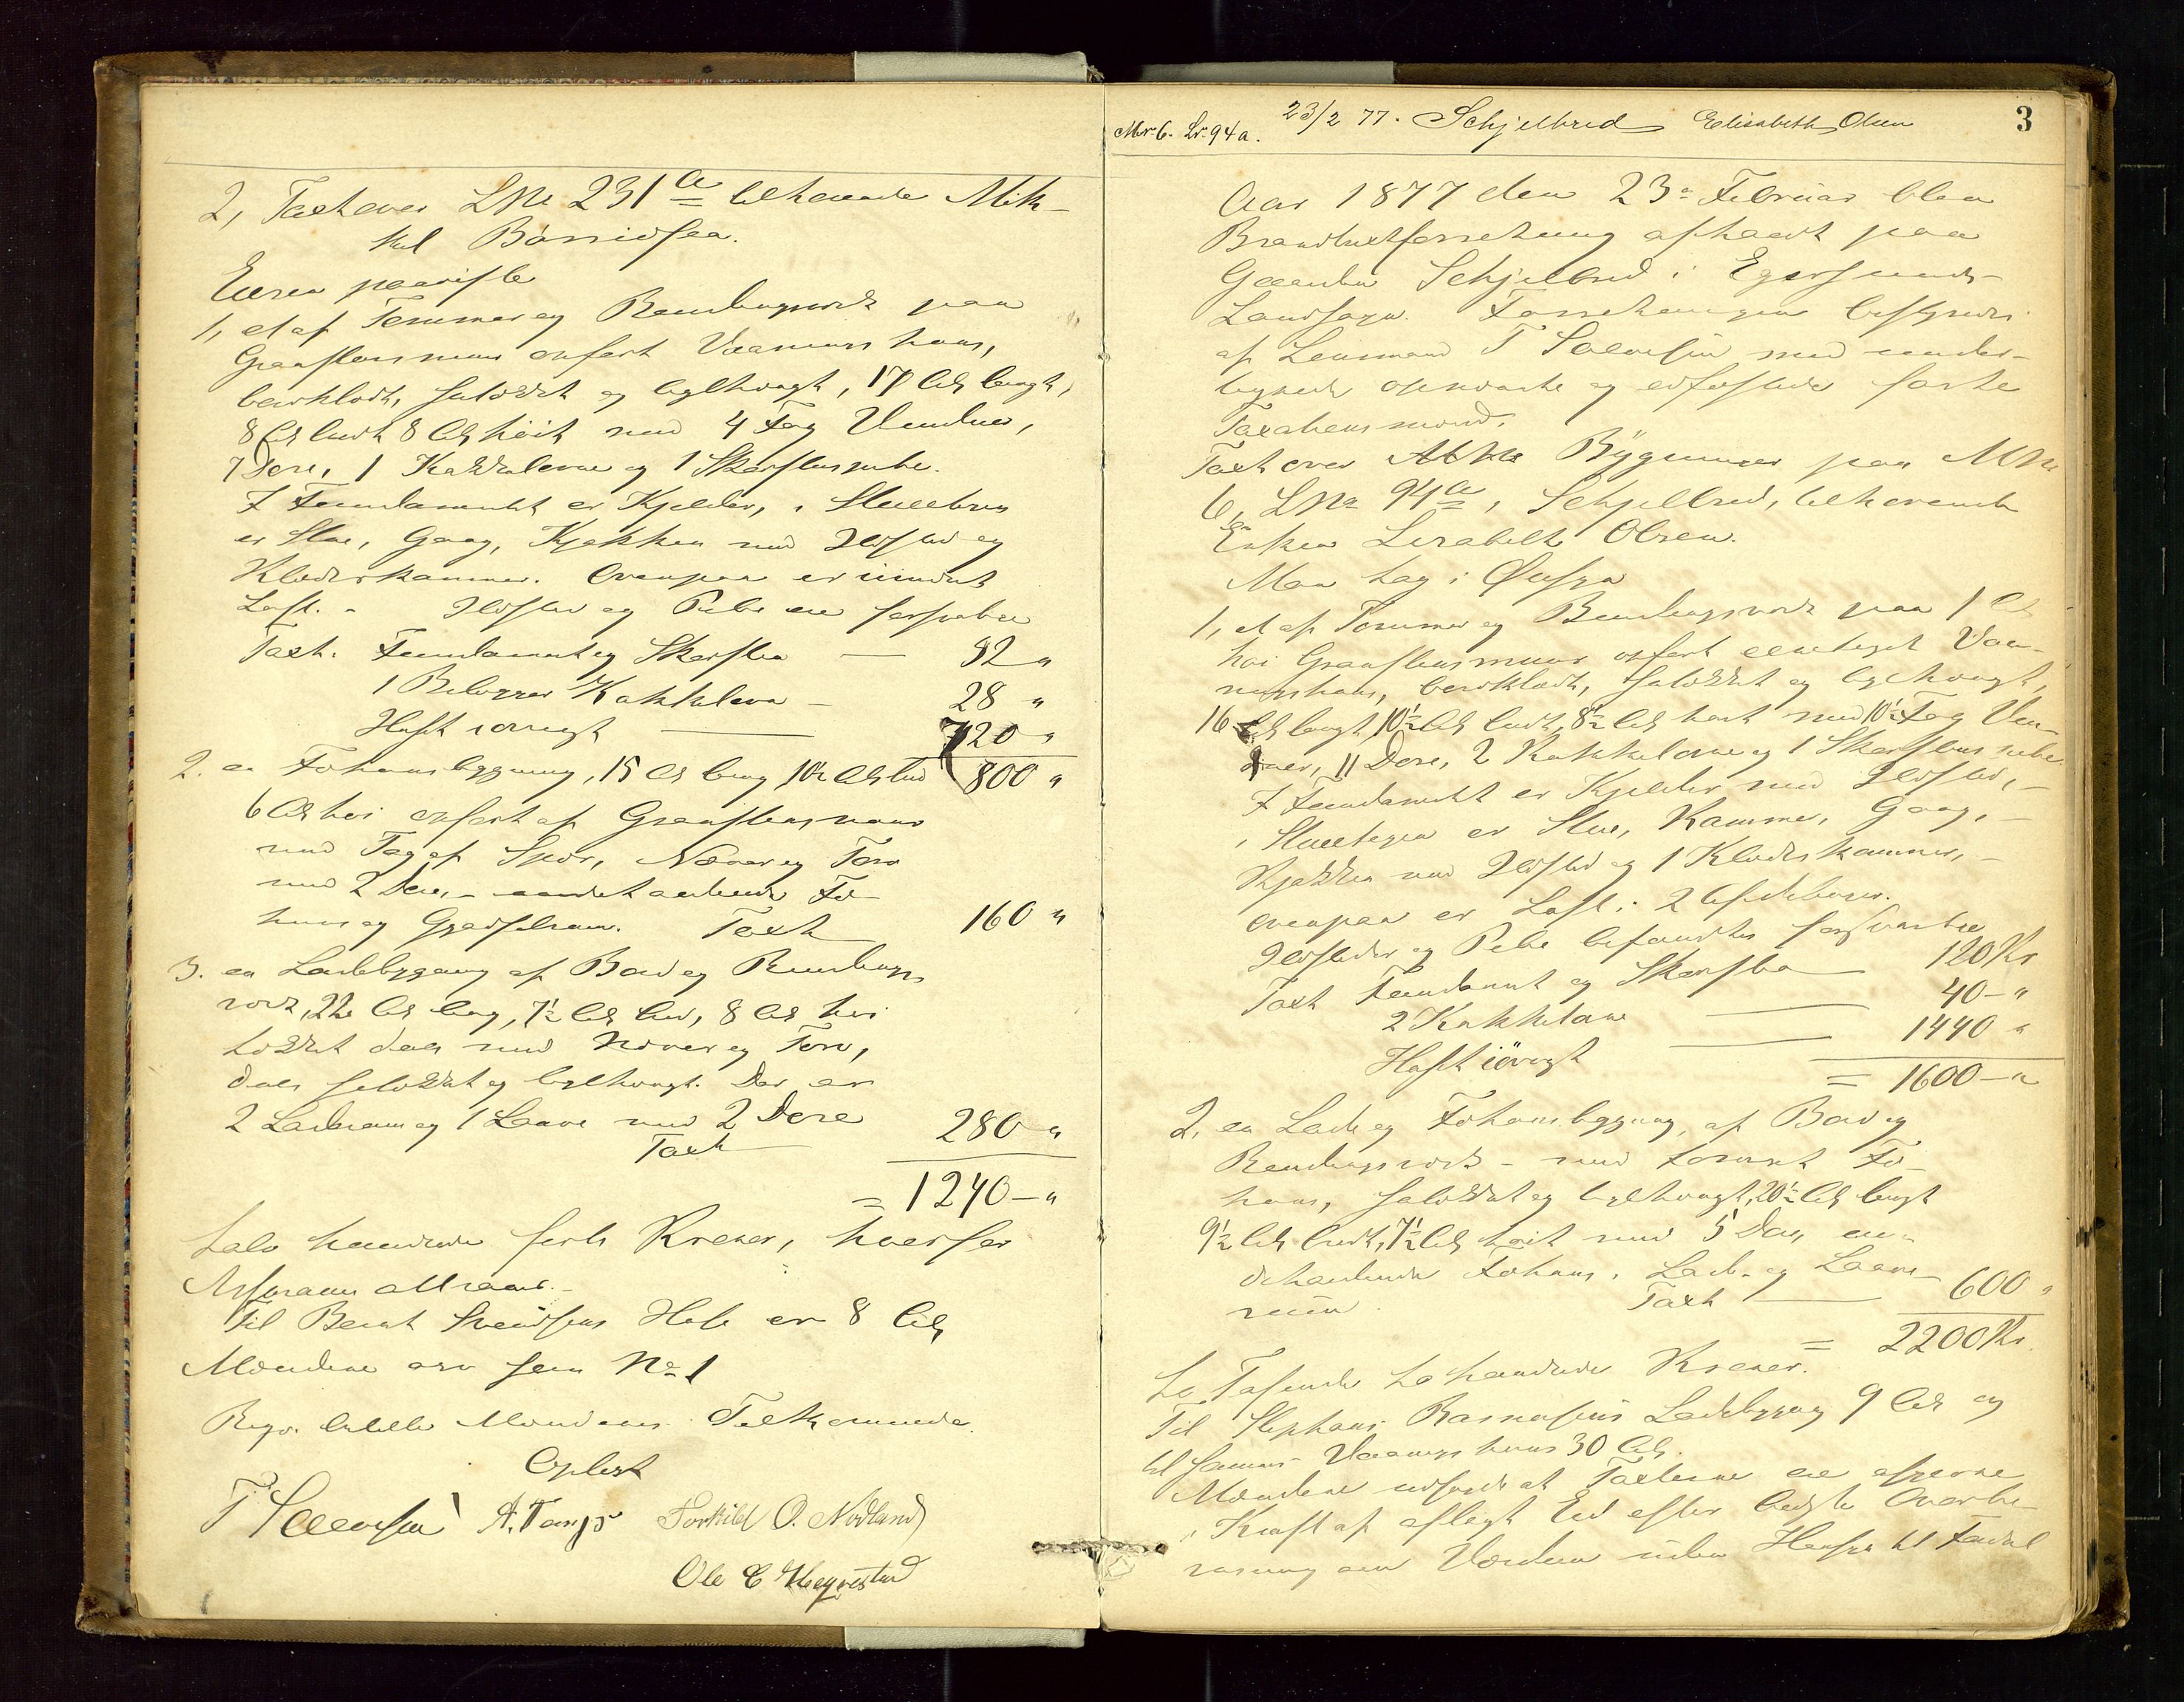 2, Taxt over LNo 231a tilhørende Mik-
kel Børridsen.
Eieren paaviste
1, et af Tømmer og Bendingsverk paa
Graastensmuur opført Vaaningshuus,
bordklædt, suløkket og teglhængt, 17 Al. langt,
8 Al. bredt 8 Al. høit med 4 Fag Vinduer,
7 Døre, 1 Kakkelovne og 1 Skorstenspibe.
I Fundamentet er Kjelder, i Stueetagen
er Stue, Gang, Kjøkken med Ildsted og
Klædeskammer. Ovenpaa er uindredt
Loft. - Ildsted og Pibe ere forsvarlige
Taxt. Fundament og Skorsten — 52 "
1 Bilægger Kakkelovn — 28 "
Huset iøvrigt — 720 "
2. en Fæhuusbygning, 15 Al. lang 10½ Al. bred 800 "
6 Al. høi opført af Graastensmuur
med Tag af Spær, Næver og Torv
med 2 Døre, - indeholdende Fæ-
huus og Gjødselrum. Taxt 160 "
3. en Ladebygning af Bord og Bendings
verk, 22 Al. lang, 7½ Al. bred, 8 Al. høi
tækket deels med Næver og Torv,
deels suløkket og teglhængt. Der er
2 Laderum og 1 Laave med 2 Døre
Taxt 280 "
= 1240 — "
tolv hundrede førti Kroner, hvorfor
Assurance attraaes. -
Til Bernt Svendsens Huse er 8 Al.
Mændene som No 1
Begv. bilille Mændenes Tilkommende.
Oplæst
T Salvesen A. Tengs Torkild O. Nodland
Ole C Hegrestad
Mn. 6. Lr. 94a. 23/2 77. Schjelbred Elisabeth Olsen 3
Aar 1877 den 23de Februar blev
Brandtaxtforretning afholdt paa
Gaarden Schjelbred i Egersunds
Landsogn. Forretningen bestyredes
af Lensmand T Salvesen med under-
tegnede opnævnte og edfæstede faste
Taxationsmænd.
Taxt over Bygninger paa MNo
6, LNo 94a, Schjelbred, tilhørende
Enken Lisabeth Olsen.
Man tog i Øiesyn
1, et af Tømmer og Bendingsverk paa 1 Al.
høi Graastensmuur opført eenetages Vaa-
ningshuus, bordklædt, suløkket og teglhængt,
16 Al. langt, 10½ Al. bredt, 8½ Al. høit med 10½ Fag Vin-
duer, 11 Døre, 2 Kakkelovne og 1 Skorstenspibe.
I Fundamentet er Kjelder med Ildsted, -
i Stueetagen er Stue, Kammer, Gang, -
Kjøkken med Ildsted og 1 Klædeskammer, -
ovenpaa er Loft i 2 Afdelinger.
Ildsteder og Pibe befandtes forsvarlige
Taxt Fundament og Skorsten — 120 Kr
2 Kakkelovne — 40 — "
Huset iøvrigt — 1440 "
= 1600 — "
2, en Lade og Fæhuusbygning, af Bord og
Bendingsverk - med tømret Fæ-
huus, suløkket og teglhængt, 20½ Al. langt
9½ Al. bredt, 7½ Al. høit med 5 Døre, in-
deholdende Fæhuus, Lade- og Laave-
rum. Taxt — 600 "
= 2200 Kr.
to Tusinde to hundrede Kroner.
Til Stephans Rasmusens Ladebygning 9 Al. og
til sammes Vaaningshuus 30 Al.
Mændene udsagde at Taxterne ere afgivne
i Kraft af aflagt Ed efter bedste Overbe-
visning om Værdien uden Hensyn til Fordel